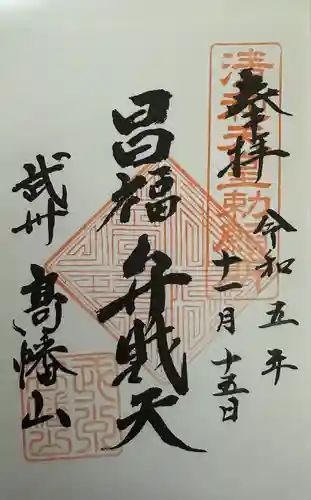 奉拝
令和五年
十一月十五日
昌福弁財天
武州
高幡山